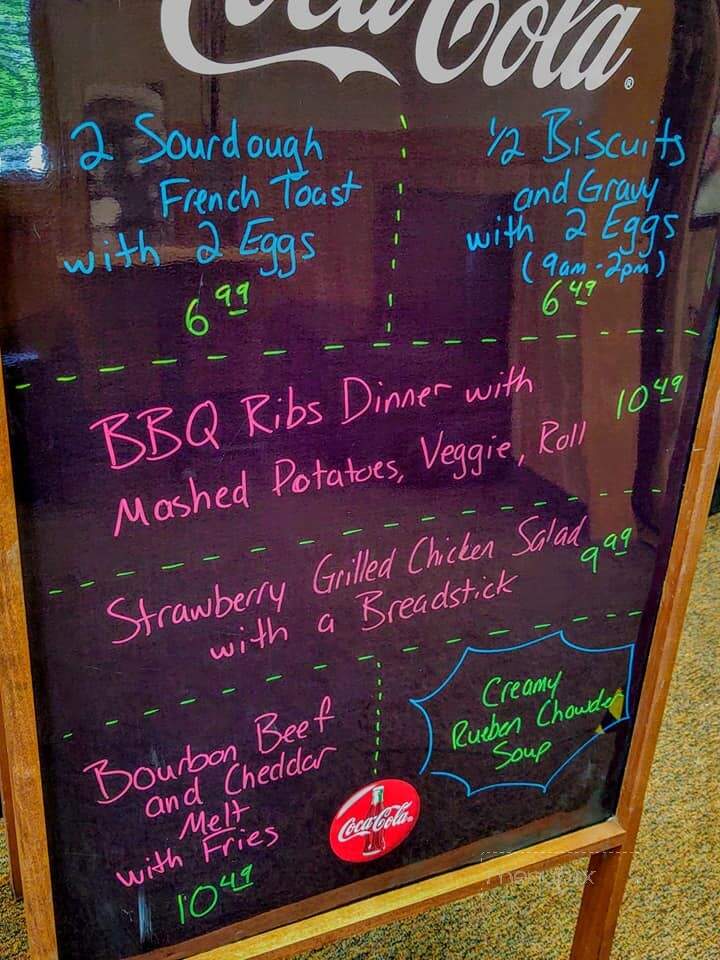 Coca-Cola
2 Sourdough
French Toast
with 2 Eggs
6 99
1/2 Biscuits
and Gravy
with 2 Eggs
(9am-2pm)
6 49
BBQ Ribs Dinner with
Mashed Potatoes, Veggie, Roll
10 49
Strawberry Grilled Chicken Salad
with a Breadstick
9 99
Bourbon Beef
and Cheddar
Melt
with Fries
10 49
Creamy
Rueben Chowder
Soup
Coca-Cola
menupix